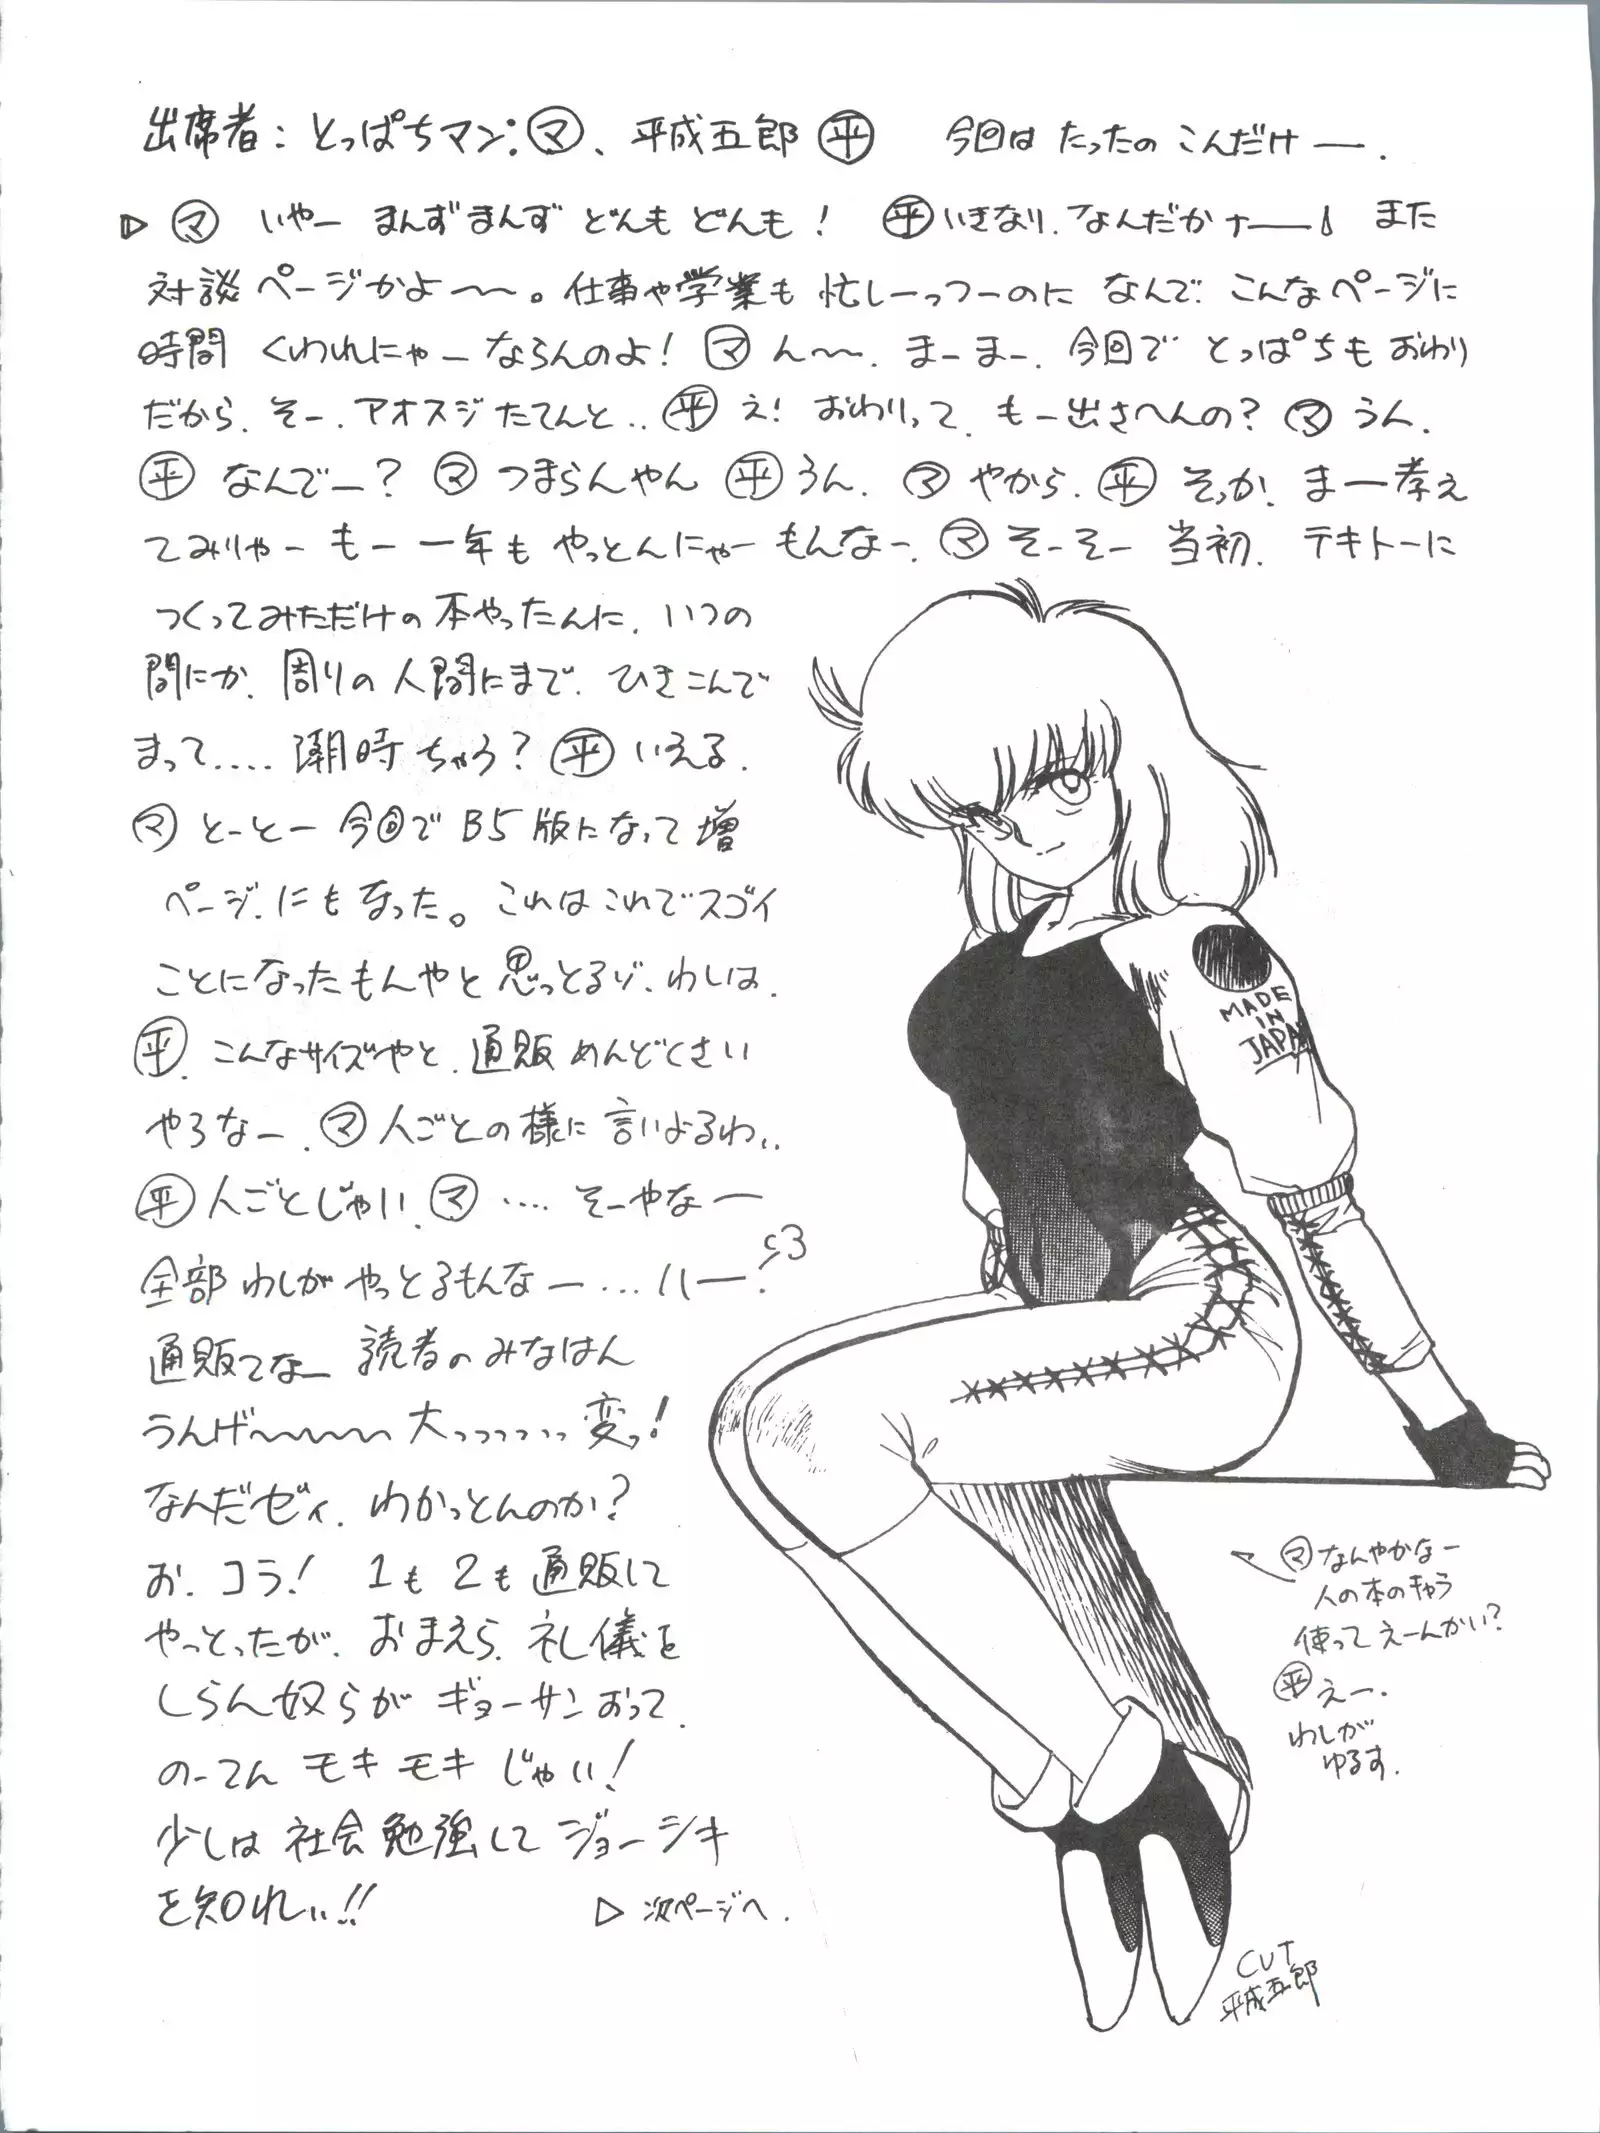 出席者：とっぱちマン：㋮、平成五郎 ㊤平 今回は たったの こんだけー.
▷ ㋮ いやー まんずまんず どんも どんも！ 平 いきなり、なんだかナー！ また
対談ページかよ〜〜。仕事や学業も忙しーっつーのに なんで こんなページに
時間 くわれにゃーならんのよ！ ㋮ ん〜〜. まーまー. 今回で とっぱちも おわり
だから. そー. アオスジたてんと.. 平 え！ おわりって. もー出さへんの？ ㋮ うん.
平 なんでー？ ㋮ つまらんやん 平 うん. ㋮ やから. 平 そっか. まー考え
てみりゃー もー 一年も やっとんにゃー もんなー. ㋮ そーそー 当初. テキトーに
つくってみただけの 本やったんに. いつの
間にか. 周りの 人間にまで. ひきこんで
まって.... 潮時ちゃう？ 平 いえる.
㋮ とーとー 今回で B5版になって 増
ページ.にもなった。これはこれでスゴイ
ことになったもんやと 思っとるゾ. わしは.
平. こんなサイズやと. 通販 めんどくさい
やろなー. ㋮ 人ごとの様に 言いよるわ..
平 人ごとじゃい. ㋮ .... そーやなー
全部 わしが やっとるもんなー... ハー.
通販てなー 読者の みなはん
うんげ〜〜〜〜 大っっっっっ 変っ！
なんだゼィ. わかっとんのか？
お. コラ！ 1も2も 通販して
やっとったが. おまえら. 礼儀を
しらん奴らが ギョーサン おって.
のーてん モキモキ じゃい！
少しは 社会勉強して ジョーシキ
を知れぃ!!
▷ 次ページへ.
MADE
IN
JAPAN
㋮ なんやかなー
人の本のキャラ
使って えーんかい？
平 えー.
わしが
ゆるす.
CUT
平成五郎